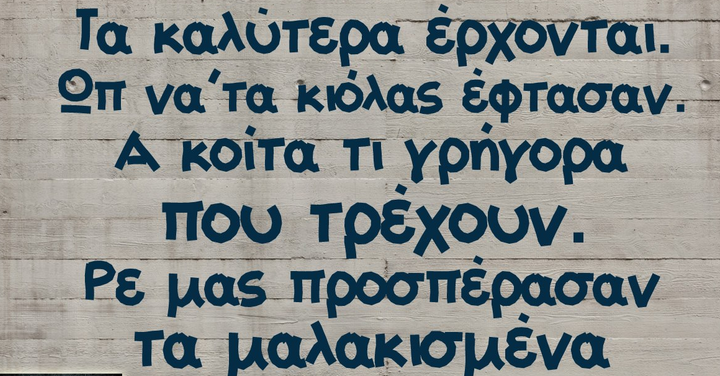 Τα καλύτερα έρχονται.
Ωπ να΄τα κιόλας έφτασαν.
Α κοίτα τι γρήγορα
που τρέχουν.
Ρε μας προσπέρασαν
τα μαλακισμένα